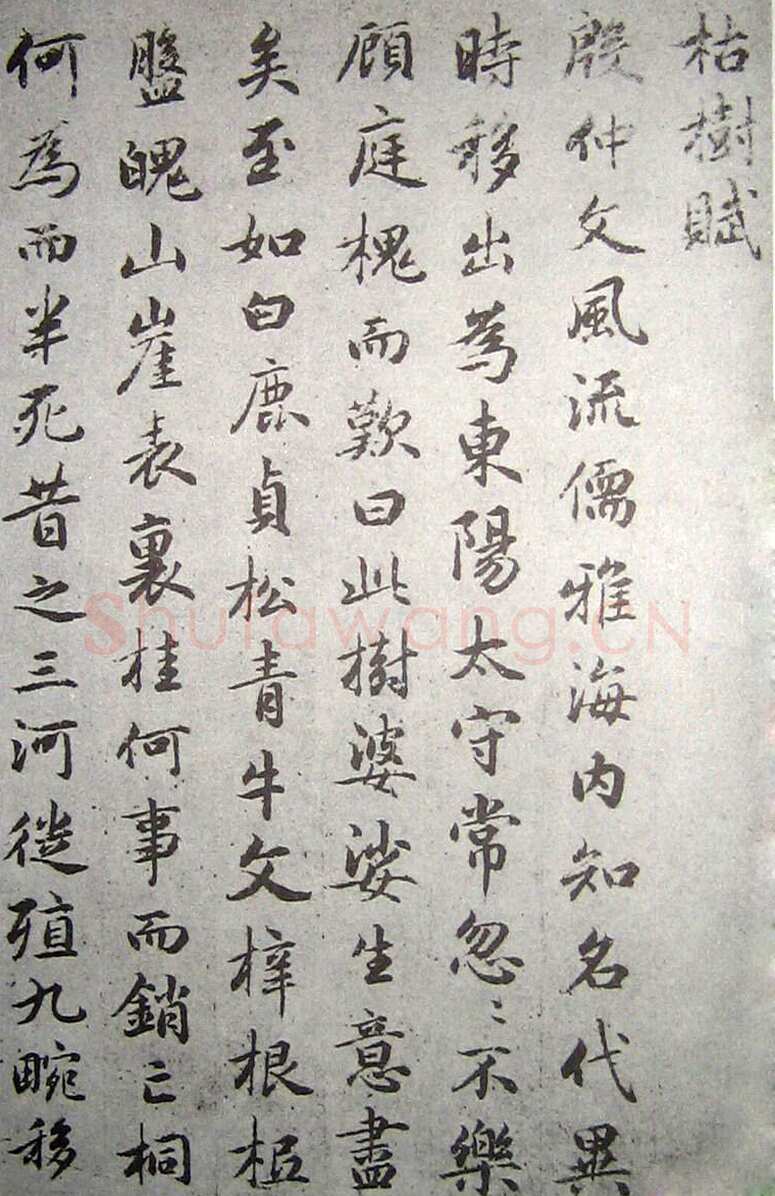 枯樹賦
殷仲文風流儒雅海内知名代異
時移出為東陽太守常忽〻不樂
顧庭槐而歎曰此樹婆娑生意盡
矣至如白鹿貞松青牛文梓根柢
盤魄山崖表裏桂何事而銷亡桐
何為而半死昔之三河徙殖九畹移
Shufawang.CN